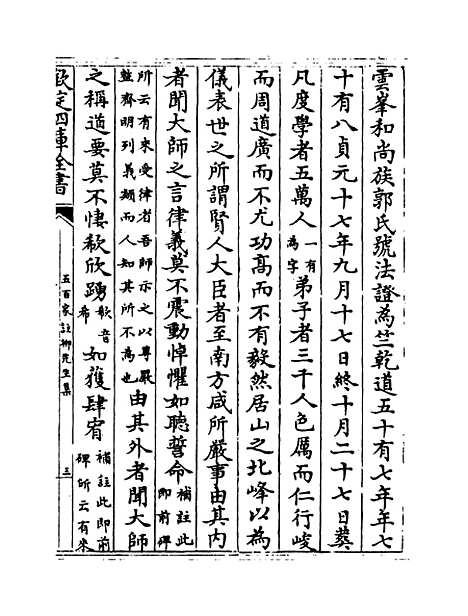 雲峯和尚族郭氏號法證為竺乾道五十有七年年七
十有八貞元十七年九月十七日終十月二十七日葬
凡度學者五萬人一有為字弟子者三千人色厲而仁行峻
而周道廣而不尤功髙而不有毅然居山之北峰以為
儀表世之所謂賢人大臣者至南方咸所嚴事由其内
者聞大師之言律義莫不震動悼懼如聽誓命補註此即前碑
所云有來受律者吾師示之以尊嚴整齊明列義類而人知其所不為也由其外者聞大師
之稱道要莫不悽欷欣踴欷音希如獲肆宥補註此即前碑所云有來
欽定四庫全書
五百家註柳先生集
三